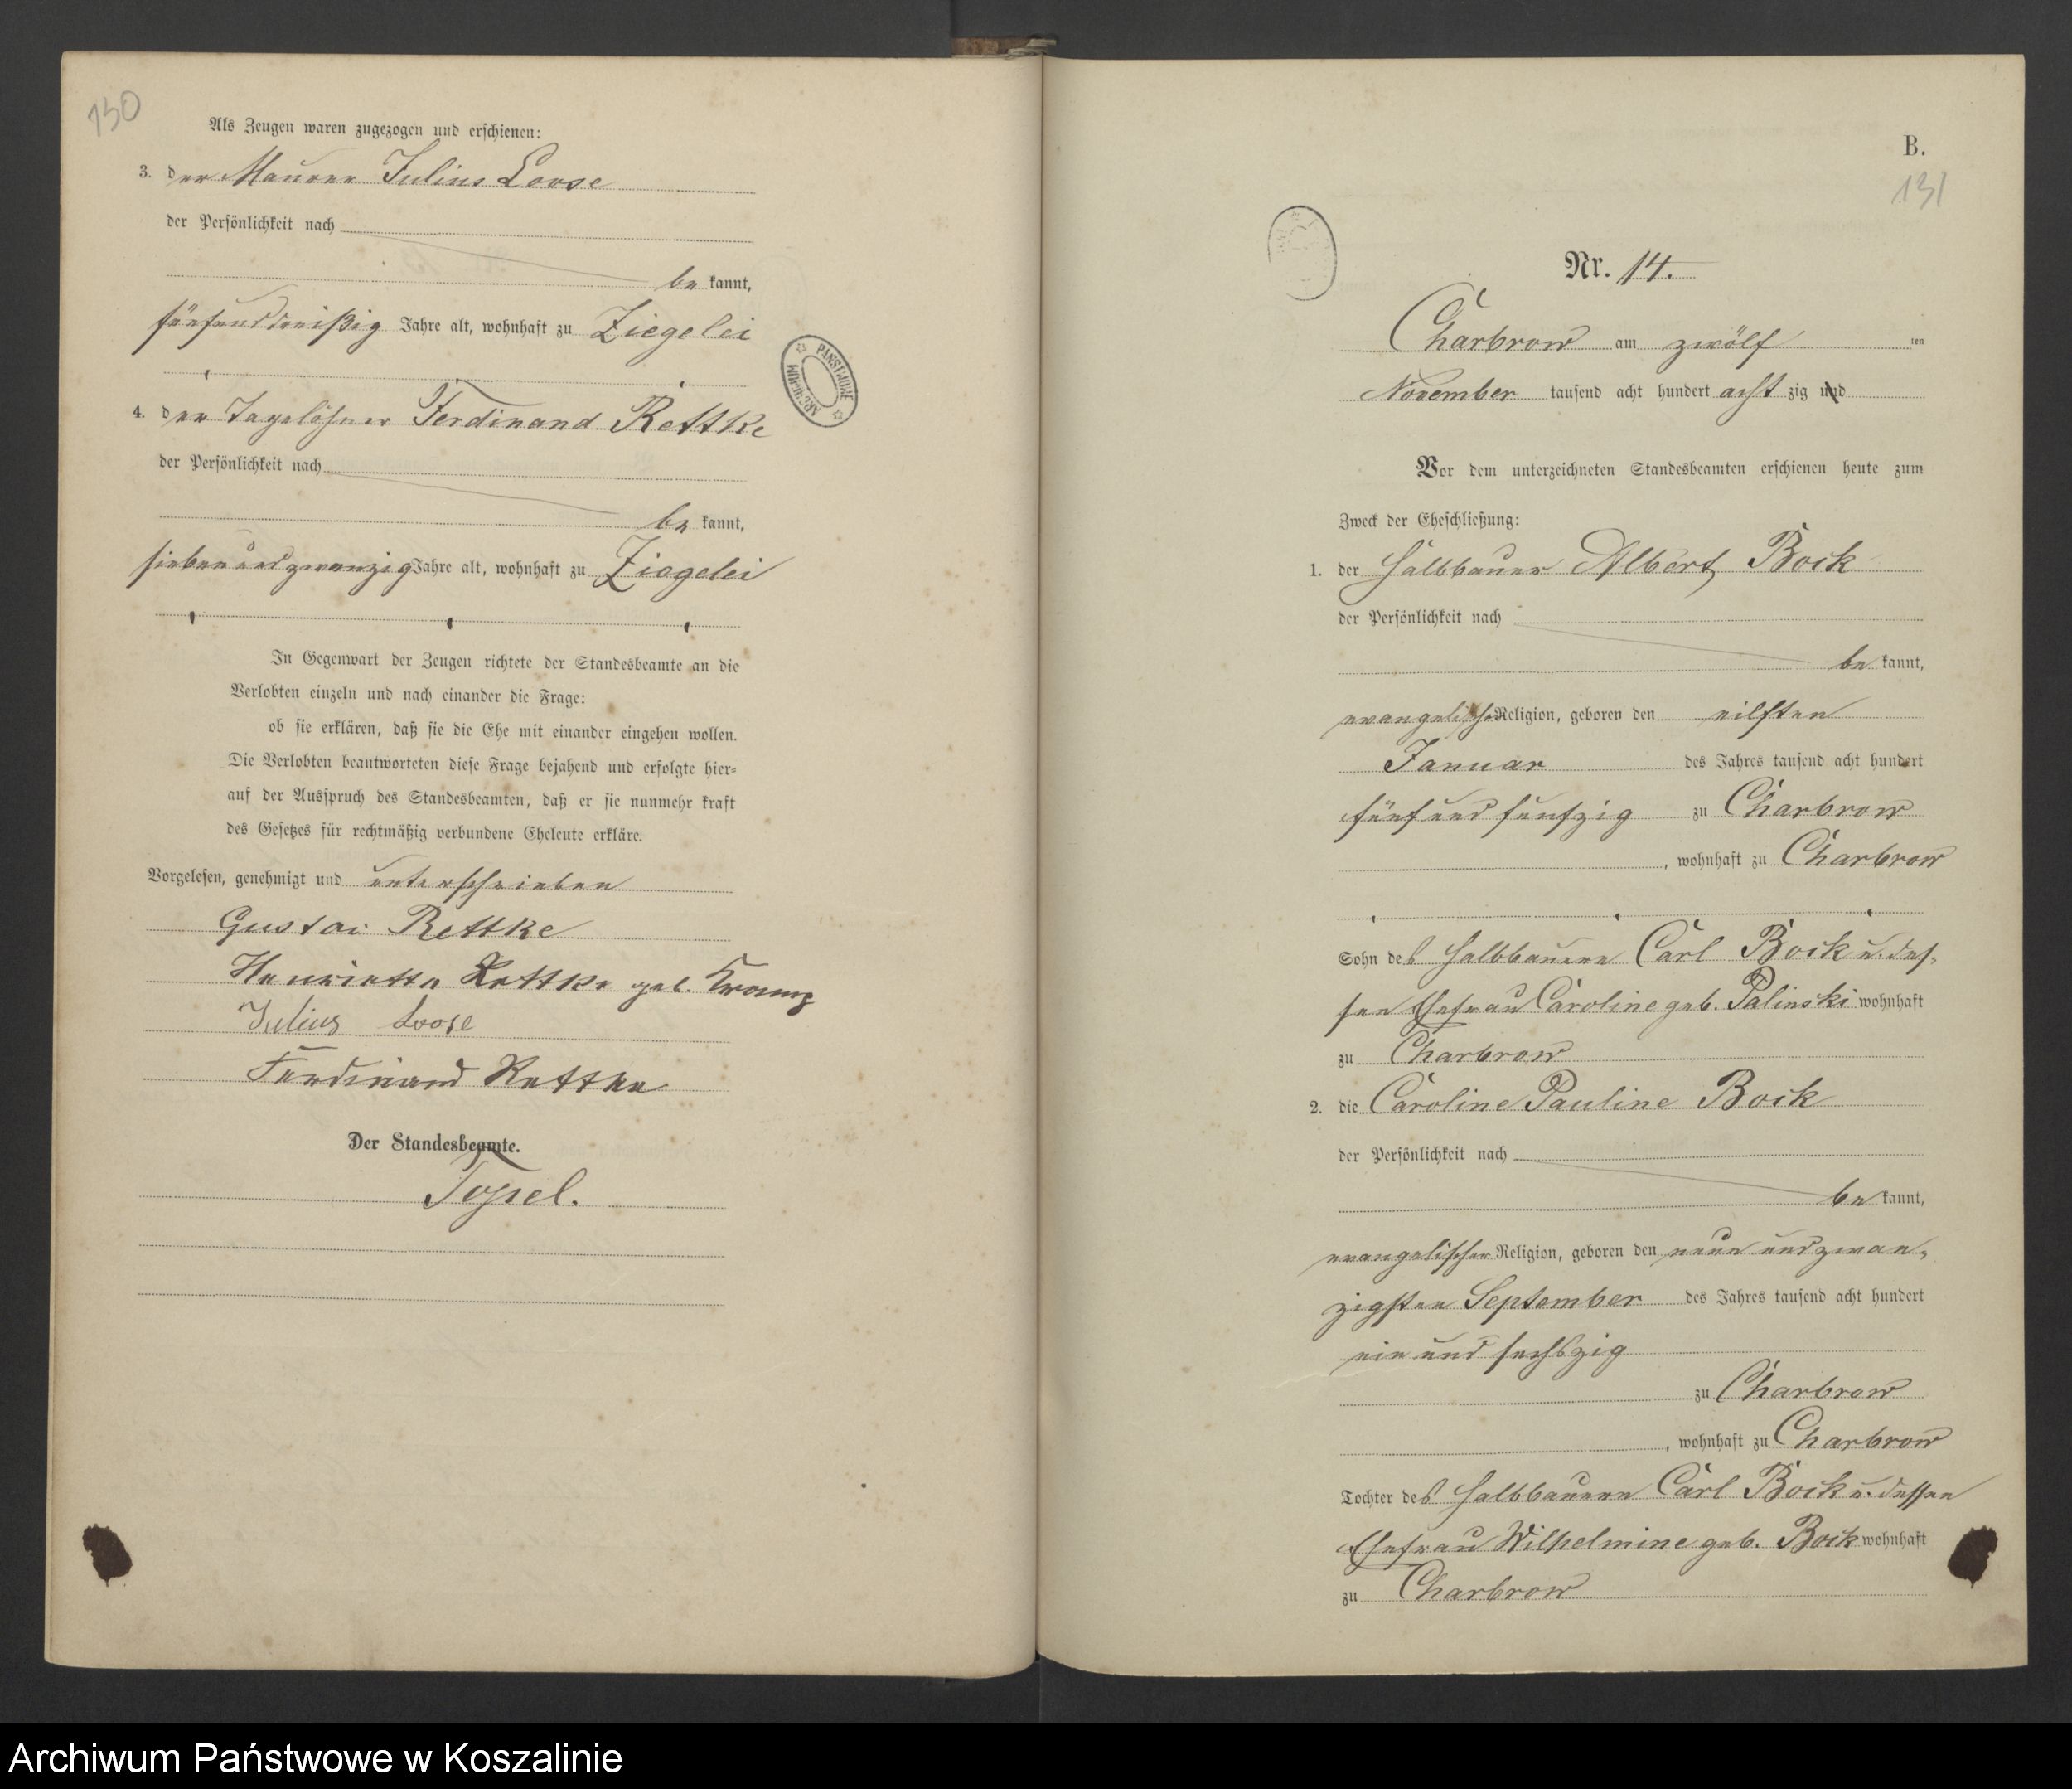 130
Als Zeugen waren zugezogen und erschienen:
3. der Maurer Julius Loose
der Persönlichkeit nach
be kannt,
fünfunddreißig Jahre alt, wohnhaft zu Ziegelei
4. der Tagelöhner Ferdinand Rettke
der Persönlichkeit nach
be kannt,
siebenundzwanzig Jahre alt, wohnhaft zu Ziegelei
In Gegenwart der Zeugen richtete der Standesbeamte an die
Verlobten einzeln und nach einander die Frage:
ob sie erklären, daß sie die Ehe mit einander eingehen wollen.
Die Verlobten beantworteten diese Frage bejahend und erfolgte hier=
auf der Ausspruch des Standesbeamten, daß er sie nunmehr kraft
des Gesetzes für rechtmäßig verbundene Eheleute erkläre.
Vorgelesen, genehmigt und unterschrieben
Gustav Rettke
Henriette Rettke geb.
Julius Loose
Ferdinand Rettke
Der Standesbeamte.
ARCHIWUM PAŃSTWOWE
B.
131
Nr. 14.
Charbrow am zwölf ten
November tausend acht hundert acht zig und
Vor dem unterzeichneten Standesbeamten erschienen heute zum
Zweck der Eheschließung:
1. der Halbbauer Albert Bock
der Persönlichkeit nach
be kannt,
evangelischer Religion, geboren den eilften
Januar des Jahres tausend acht hundert
fünf und funfzig zu Charbrow
, wohnhaft zu Charbrow
Sohn des Halbbauern Carl Bock u. des-
sen Ehefrau Caroline geb. Palinski wohnhaft
zu Charbrow
2. die Caroline Pauline Bock
der Persönlichkeit nach
be kannt,
evangelischer Religion, geboren den neun und zwan-
zigsten September des Jahres tausend acht hundert
ein und sechszig
zu Charbrow
, wohnhaft zu Charbrow
Tochter des Halbbauern Carl Bock u. dessen
Ehefrau Wilhelmine geb. Bock wohnhaft
zu Charbrow
Archiwum Państwowe w Koszalinie